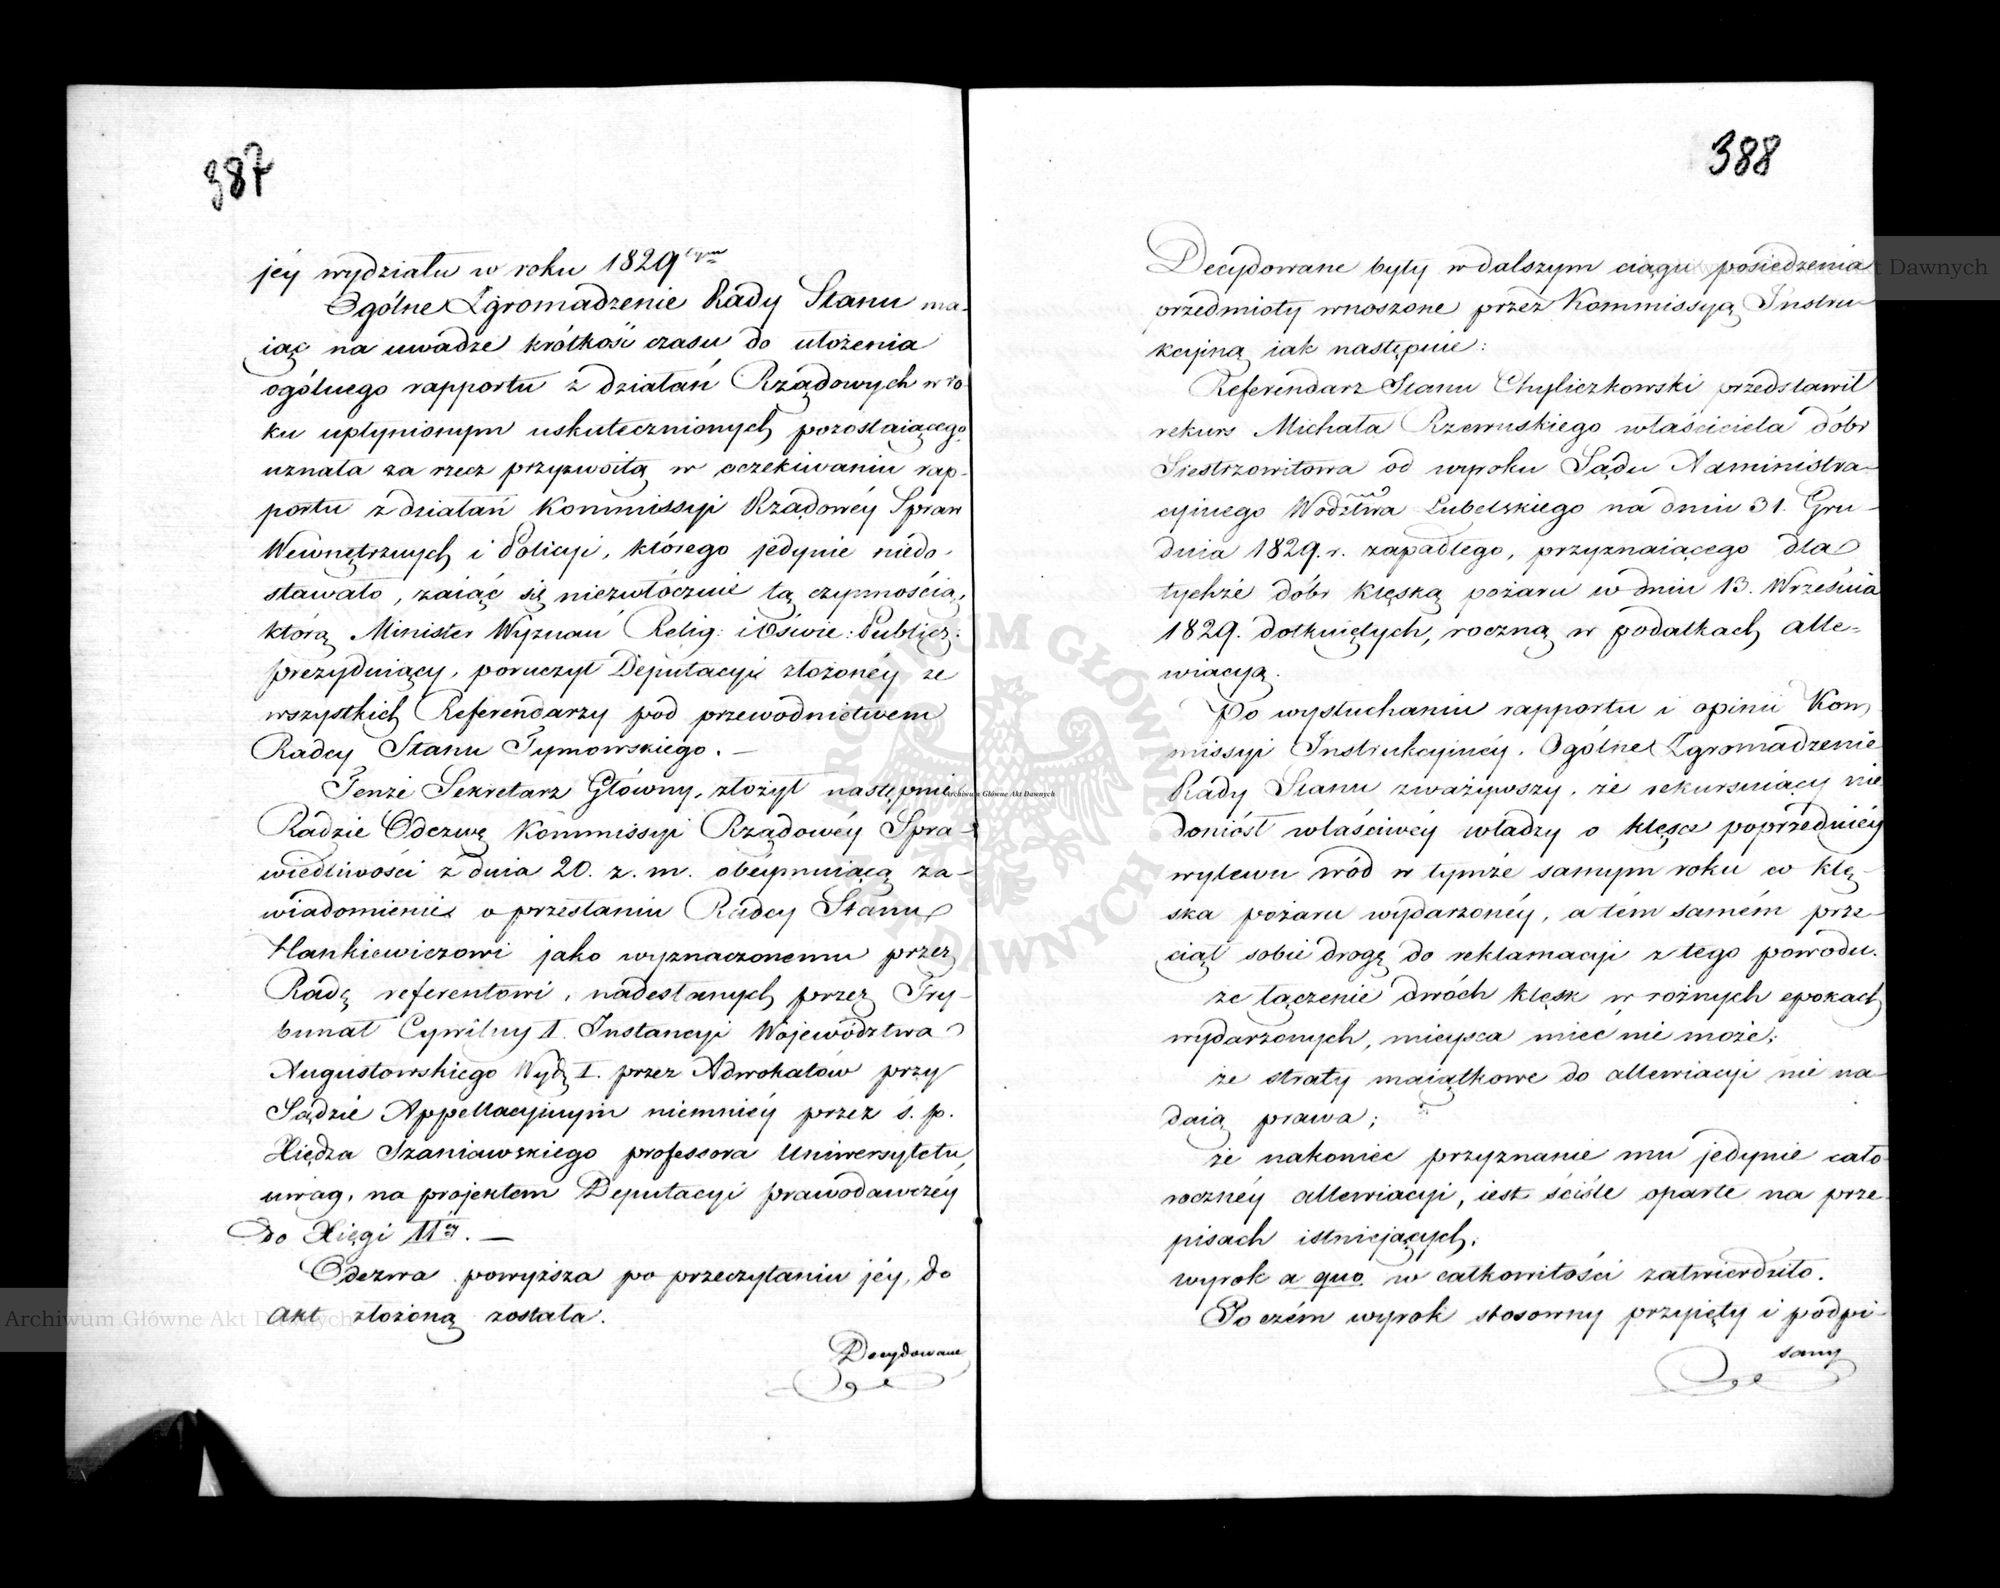 387
jéy wydziału w roku 1829tym
Ogólne Zgromadzenie Rady Stanu ma-
iąc na uwadze krótkość czasu do ułożenia
ogólnego rapportu z działań Rządowych w ro-
ku upłynionym uskutecznionych pozostaiącego
uznała za rzecz przyzwoitą w oczekiwaniu rap-
portu z działań Kommissyi Rządowéy Spraw
Wewnętrznych i Policyi, którego jedynie niedo-
stawało, zaiąć się niezwłócznie tą czynnością,
którą Minister Wyznań Relig: i Oświe: Publicz:
prezyduiący, poruczył Deputacyi złożonéy ze
wszystkich Referendarzy pod przewodnictwem
Radcy Stanu Tymowskiego. —
Tenże Sekretarz Główny, złożył następnie
Radzie Odezwę Kommissyi Rządowéy Spra-
wiedliwości z dnia 20. z. m. obéymuiącą za-
wiadomienie o przesłaniu Radcy Stanu
Hankiewiczowi jako wyznaczonemu przez
Radę referentowi, nadesłanych przez Try-
bunał Cywilny I. Instancyi Województwa
Augustowskiego Wydz I. przez Adwokatów przy
Sądzie Appellacyinym niemniéy przez ś. p.
Xiędza Szaniawskiego professora Uniwersytetu,
uwag, na projektem Deputacyi prawodawczéy
do Xięgi IIéy. —
Odezwa powyższa po przeczytaniu jéy, do
Akt złożoną została.
Decydowane
388
Decydowane były w dalszym ciągu posiedzenia
przedmioty wnoszone przez Kommissyą Instru-
kcyiną iak następuie:
Referendarz Stanu Chyliczkowski przedstawił
rekurs Michała Rzewuskiego właściciela dóbr
Siestrzowitowa od wyroku Sądu Administra-
cyinego Wodztwa Lubelskiego na dniu 31. Gru-
dnia 1829. r. zapadłego, przyznaiącego dla
tychże dóbr klęską pożaru w dniu 13. Września
1829. dotkniętych, roczną w podatkach alle-
wiacyą.
Po wysłuchaniu rapportu i opinii Kom-
missyi Instrukcyinéy. Ogólne Zgromadzenie
Rady Stanu zważywszy, że rekursuiący nie
doniósł właściwéy władzy o klęsce poprzedniéy
wylewu wód w tymże samym roku co klę-
ska pożaru wydarzonéy, a tém samém prze-
ciął sobie drogę do reklamacyi z tego powodu.
że łączenie dwóch klęsk w rożnych epokach
wydarzonych, mieysca mieć nie może;
że straty maiątkowe do allewiacyi nie na-
daią prawa;
że nakoniec przyznanie mu jedynie cało-
rocznéy allewiacyi, iest ściśle oparte na prze-
pisach istniejących;
wyrok a quo w całkowitości zatwierdziło.
Po czém wyrok stosowny przyięty i podpi-
sany
Archiwum Główne Akt Dawnych